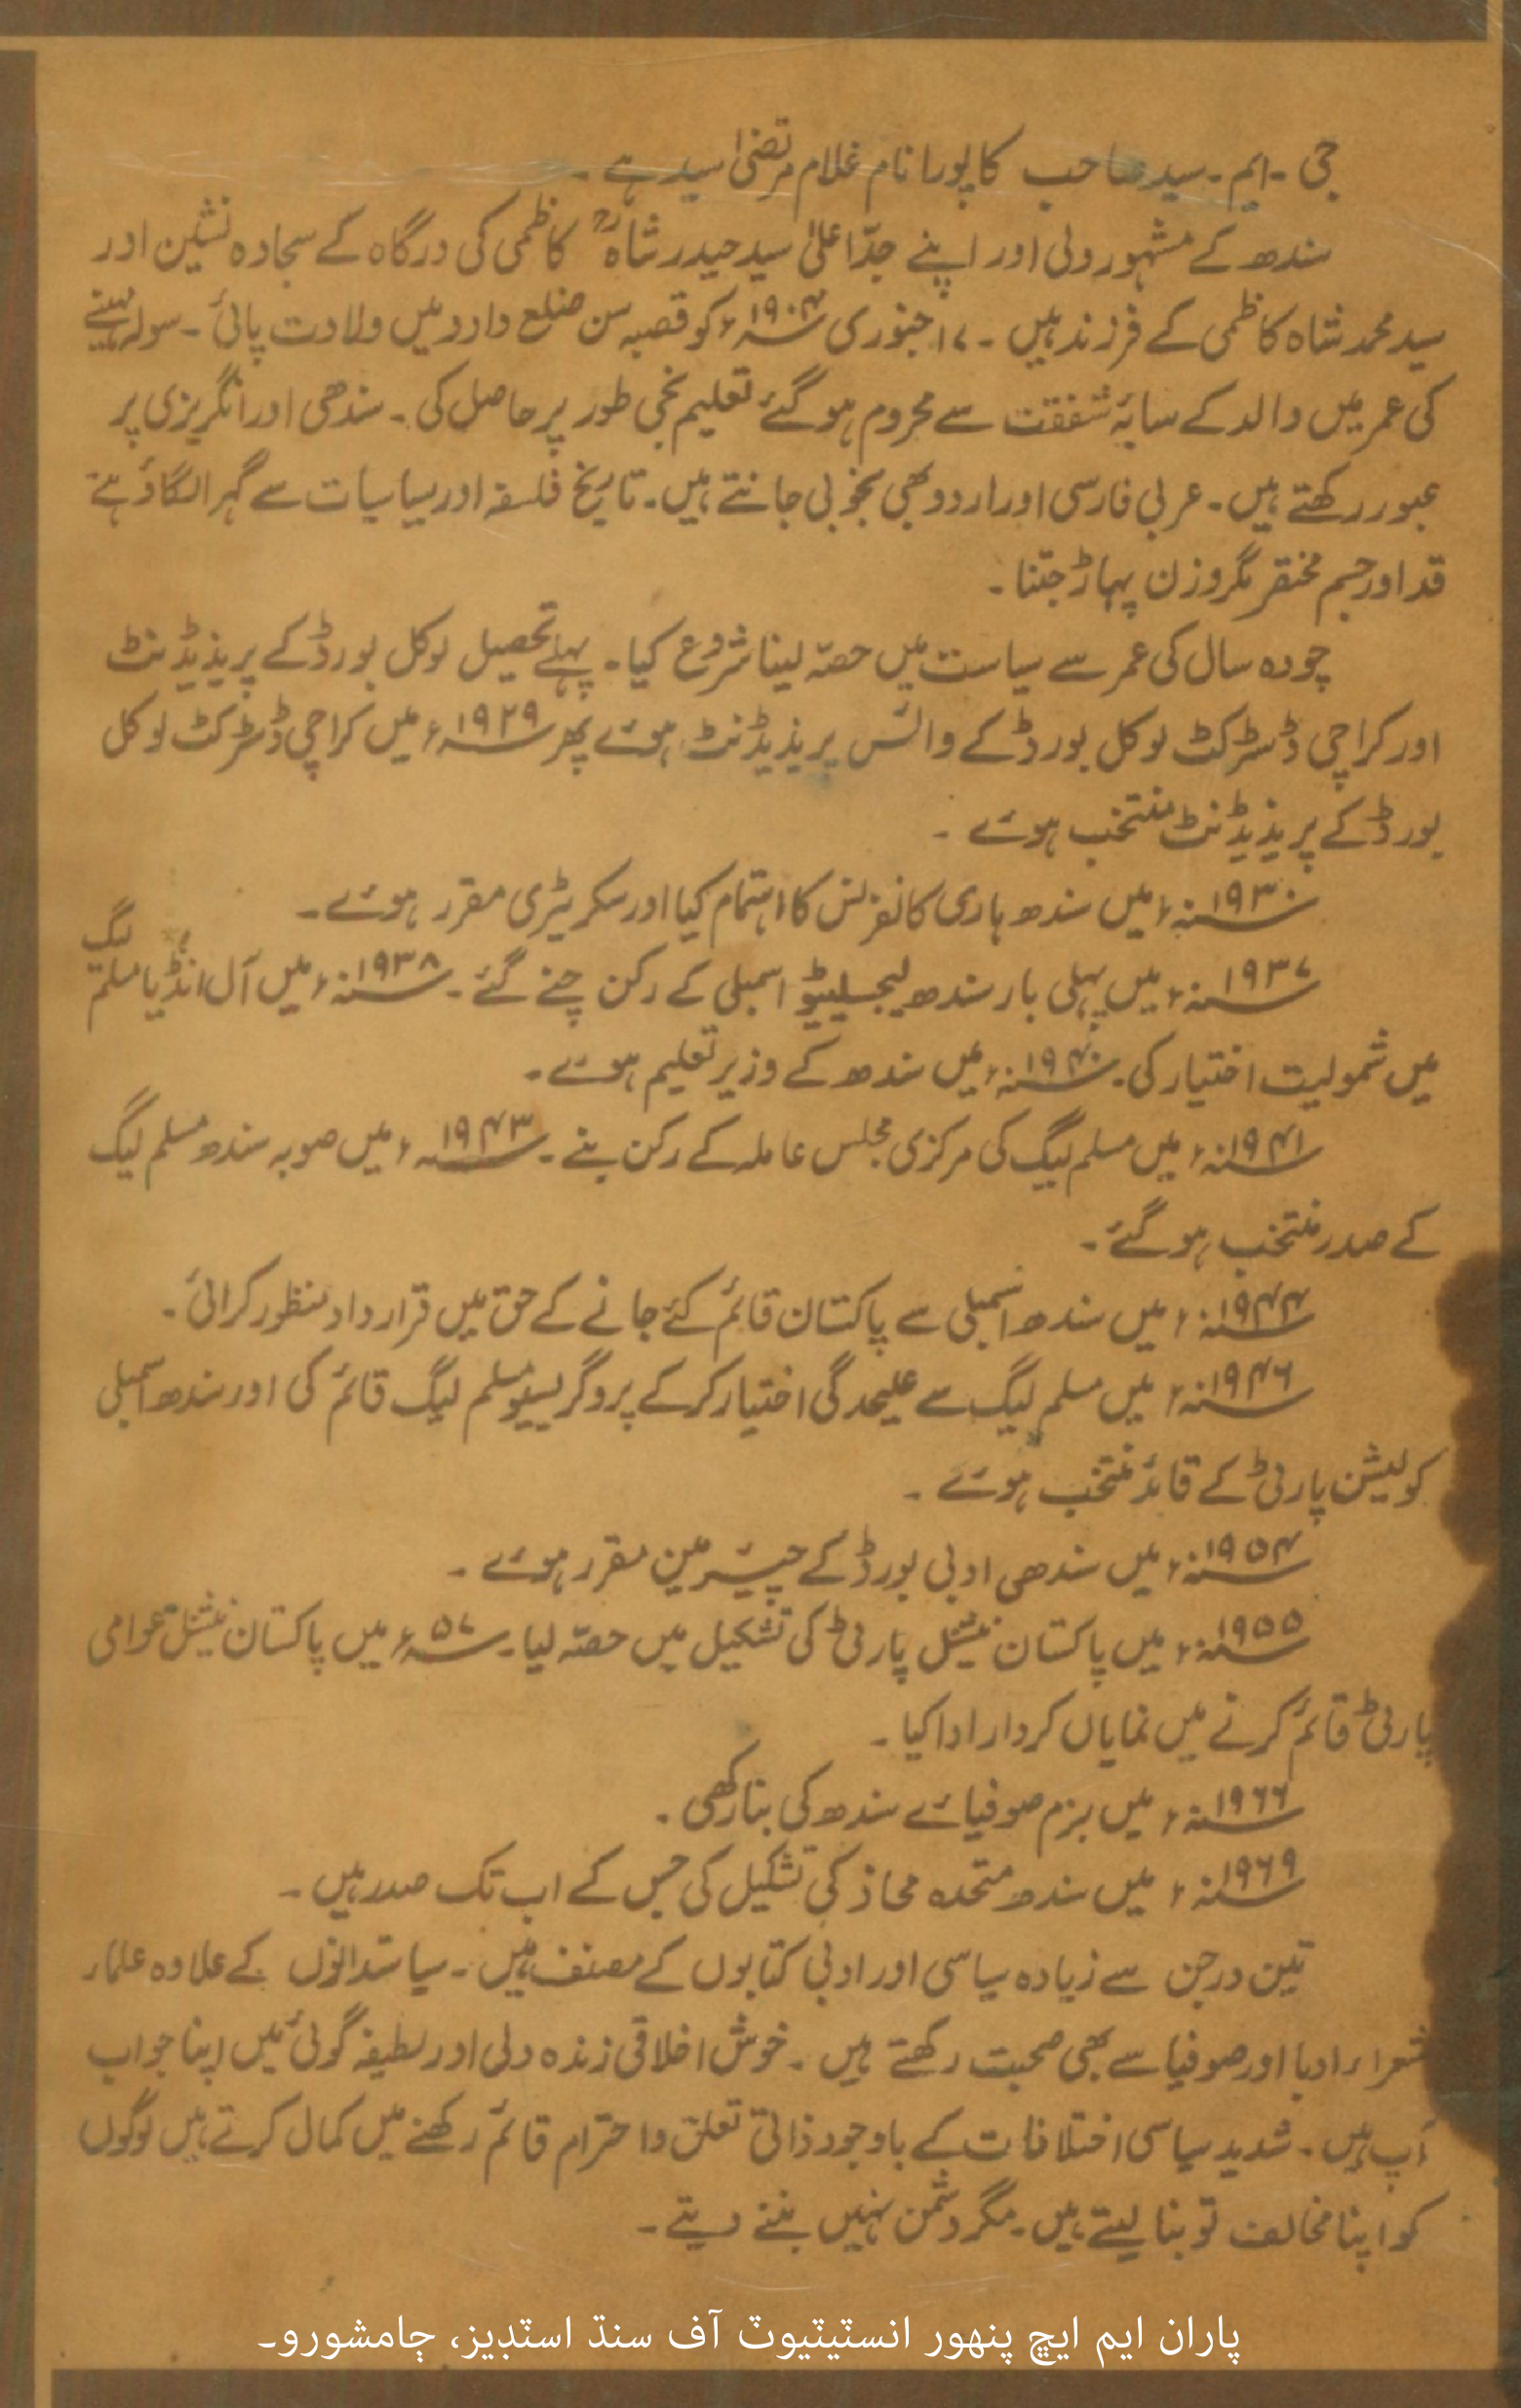 جی ۔ ایم ۔ سید صاحب کا پورا نام غلام مرتضیٰ سید ہے ۔
سندھ کے مشہور ولی اور اپنے جدّ اعلیٰ سید حیدر شاہؒ کاظمی کی درگاہ کے سجادہ نشین اور
سید محمد شاہ کاظمی کے فرزند ہیں ۔ ۱۷ جنوری ۱۹۰۴ء کو قصبہ سن ضلع دادو میں ولادت پائی ۔ سولہ مہینے
کی عمر میں والد کے سایۂ شفقت سے محروم ہو گئے تعلیم نجی طور پر حاصل کی ۔ سندھی اور انگریزی پر
عبور رکھتے ہیں ۔ عربی فارسی اور اردو بھی بخوبی جانتے ہیں ۔ تاریخ فلسفہ اور سیاسیات سے گہرا لگاؤ ہے
قد اور جسم مختصر مگر وزن پہاڑ جتنا ۔
چودہ سال کی عمر سے سیاست میں حصّہ لینا شروع کیا ۔ پہلے تحصیل لوکل بورڈ کے پریذیڈنٹ
اور کراچی ڈسٹرکٹ لوکل بورڈ کے وائس پریذیڈنٹ ہوئے پھر ۱۹۲۹ء میں کراچی ڈسٹرکٹ لوکل
بورڈ کے پریذیڈنٹ منتخب ہوئے ۔
۱۹۳۰ء میں سندھ ہاری کانفرنس کا اہتمام کیا اور سکریٹری مقرر ہوئے ۔
۱۹۳۷ء میں پہلی بار سندھ لیجسلیٹو اسمبلی کے رکن چنے گئے ۔ ۱۹۳۸ء میں آل انڈیا مسلم لیگ
میں شمولیت اختیار کی ۔ ۱۹۴۰ء میں سندھ کے وزیر تعلیم ہوئے ۔
۱۹۴۱ء میں مسلم لیگ کی مرکزی مجلس عاملہ کے رکن بنے ۔ ۱۹۴۳ء میں صوبہ سندھ مسلم لیگ
کے صدر منتخب ہو گئے ۔
۱۹۴۴ء میں سندھ اسمبلی سے پاکستان قائم کئے جانے کے حق میں قرارداد منظور کرائی ۔
۱۹۴۶ء میں مسلم لیگ سے علیحدگی اختیار کر کے پروگریسیو مسلم لیگ قائم کی اور سندھ اسمبلی
کولیشن پارٹی کے قائد منتخب ہوئے ۔
۱۹۵۴ء میں سندھی ادبی بورڈ کے چیئرمین مقرر ہوئے ۔
۱۹۵۵ء میں پاکستان نیشنل پارٹی کی تشکیل میں حصّہ لیا ۔ ۵۷ء میں پاکستان نیشنل عوامی
پارٹی قائم کرنے میں نمایاں کردار ادا کیا ۔
۱۹۶۶ء میں بزم صوفیائے سندھ کی بنا رکھی ۔
۱۹۶۹ء میں سندھ متحدہ محاذ کی تشکیل کی جس کے اب تک صدر ہیں ۔
تین درجن سے زیادہ سیاسی اور ادبی کتابوں کے مصنف ہیں ۔ سیاستدانوں کے علاوہ علماء
شعراء ادبا اور صوفیا سے بھی صحبت رکھتے ہیں ۔ خوش اخلاقی زندہ دلی اور لطیفہ گوئی میں اپنا جواب
آپ ہیں ۔ شدید سیاسی اختلافات کے باوجود ذاتی تعلق و احترام قائم رکھنے میں کمال کرتے ہیں لوگوں
کو اپنا مخالف تو بنا لیتے ہیں ۔ مگر دشمن نہیں بننے دیتے ۔
پاران ايم ايڇ پنهور انسٽيٽيوٽ آف سنڌ اسٽڊيز، ڄامشورو۔